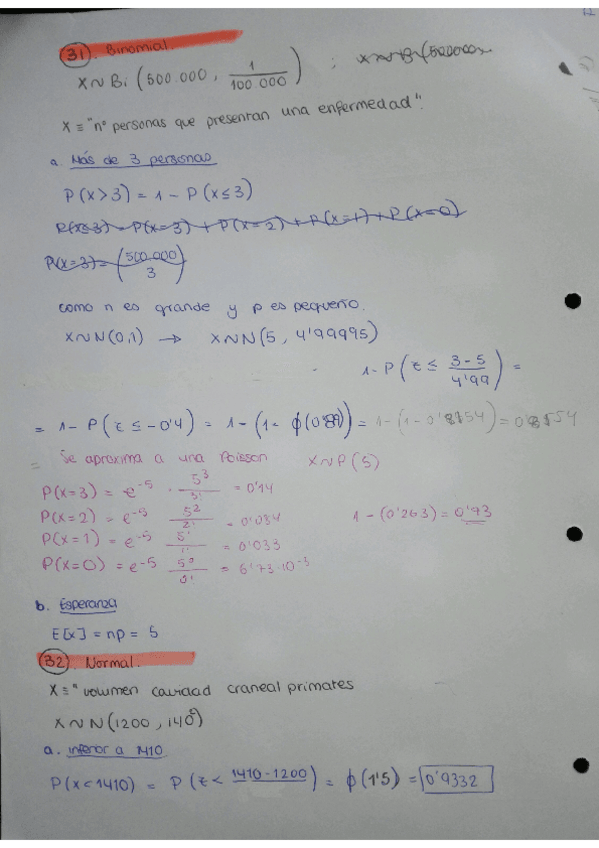 31). Binomial.
X ~ Bi (500.000, 1/100.000) ; X~Bi(500000
X ≡ "nº personas que presentan una enfermedad".
a. Más de 3 personas
P(X>3) = 1 - P(X≤3)
P(X≤3) = P(X=3) + P(X=2) + P(X=1) + P(X=0)
P(X=3) = (500.000 / 3)
como n es grande y p es pequeño.
X~N(0,1) → X~N(5, 4'99995)
1-P(z ≤ (3-5)/4'99) =
= 1 - P(z ≤ -0'4) = 1 - (1- ϕ(0'89)) = 1-(1-0'8154) = 0'8154
= Se aproxima a una Poisson X~P(5)
P(X=3) = e^-5 · 5^3/3! = 0'14
P(X=2) = e^-5 5^2/2! = 0'084
P(X=1) = e^-5 5^1/1! = 0'033
1-(0'263) = 0'73
P(X=0) = e^-5 5^0/0! = 6'73·10^-3
b. Esperanza
E[X] = np = 5
32). Normal.
X ≡ "volumen cavidad craneal primates
X~N(1200, 140²)
a. inferior a 1410
P(X<1410) = P(z < 1410-1200) = ϕ(1'5) = 0'9332